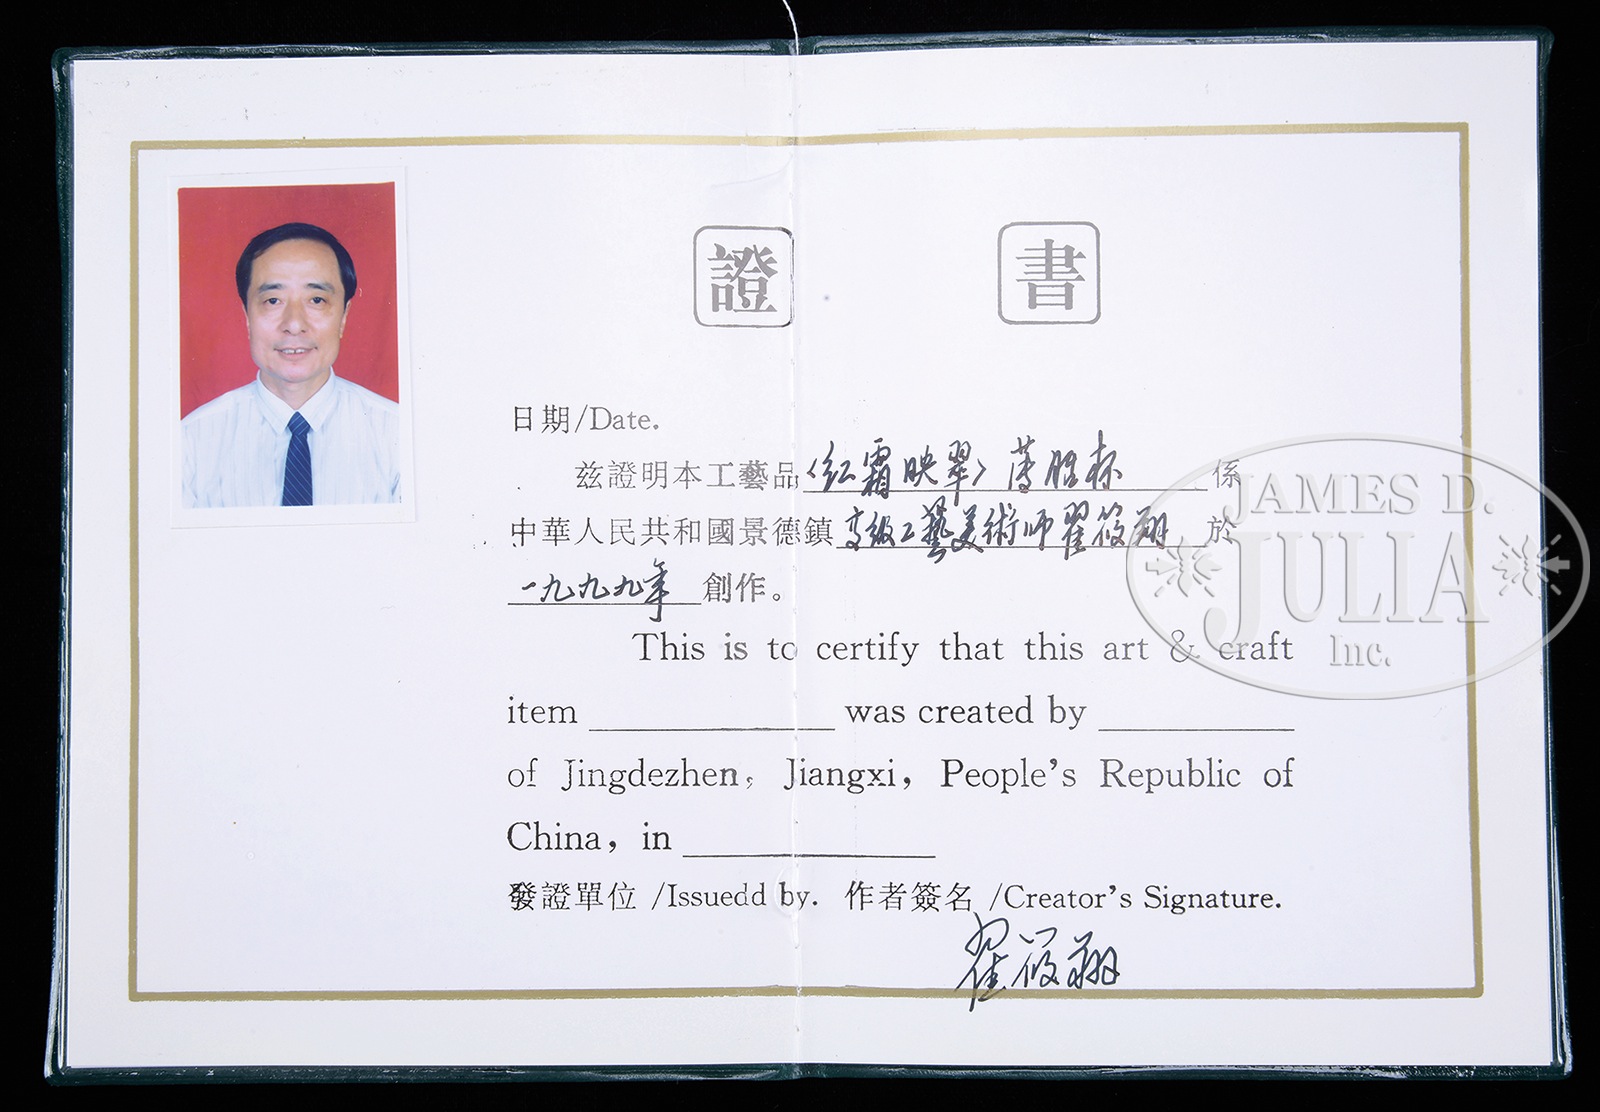 證書
日期/Date.
兹證明本工藝品《红霜映翠》薄胎杯 係
中華人民共和國景德鎮高级工藝美術师翟筱翔 於
一九九九年 創作。
This is to certify that this art & craft
item was created by
of Jingdezhen, Jiangxi, People's Republic of
China, in
發證單位 /Issuedd by. 作者簽名 /Creator's Signature.
翟筱翔
JAMES D.
JULIA
Inc.